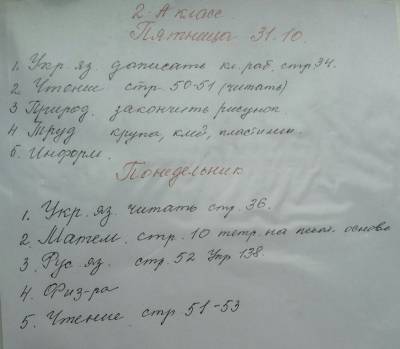 2-А класс.
Пятница 31.10.
1. Укр. яз. дописать кл. раб. стр 34.
2 Чтение стр. 50-51 (читать)
3 Природ. закончить рисунок.
4 Труд крупа, клей, пластилин.
5. Информ.
Понедельник
1. Укр. яз. читать стр. 36.
2. Матем. стр. 10 тетр. на печат. основе
3. Рус яз. стр. 52 Упр 138.
4. Физ-ра
5. Чтение стр 51-53